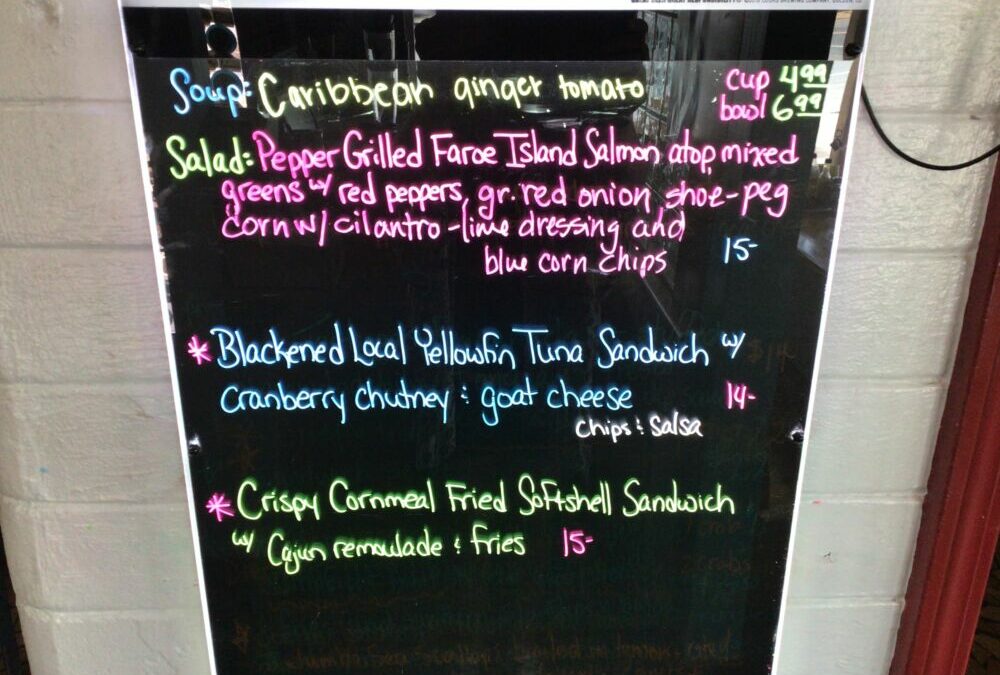 Soup: Caribbean ginger tomato cup 4.99
bowl 6.99
Salad: Pepper Grilled Faroe Island Salmon atop mixed
greens w/ red peppers, gr. red onion shoe-peg
corn w/ cilantro-lime dressing and
blue corn chips 15-
* Blackened Local Yellowfin Tuna Sandwich w/
cranberry chutney & goat cheese 14-
chips & salsa
* Crispy Cornmeal Fried Softshell Sandwich
w/ Cajun remoulade & fries 15-